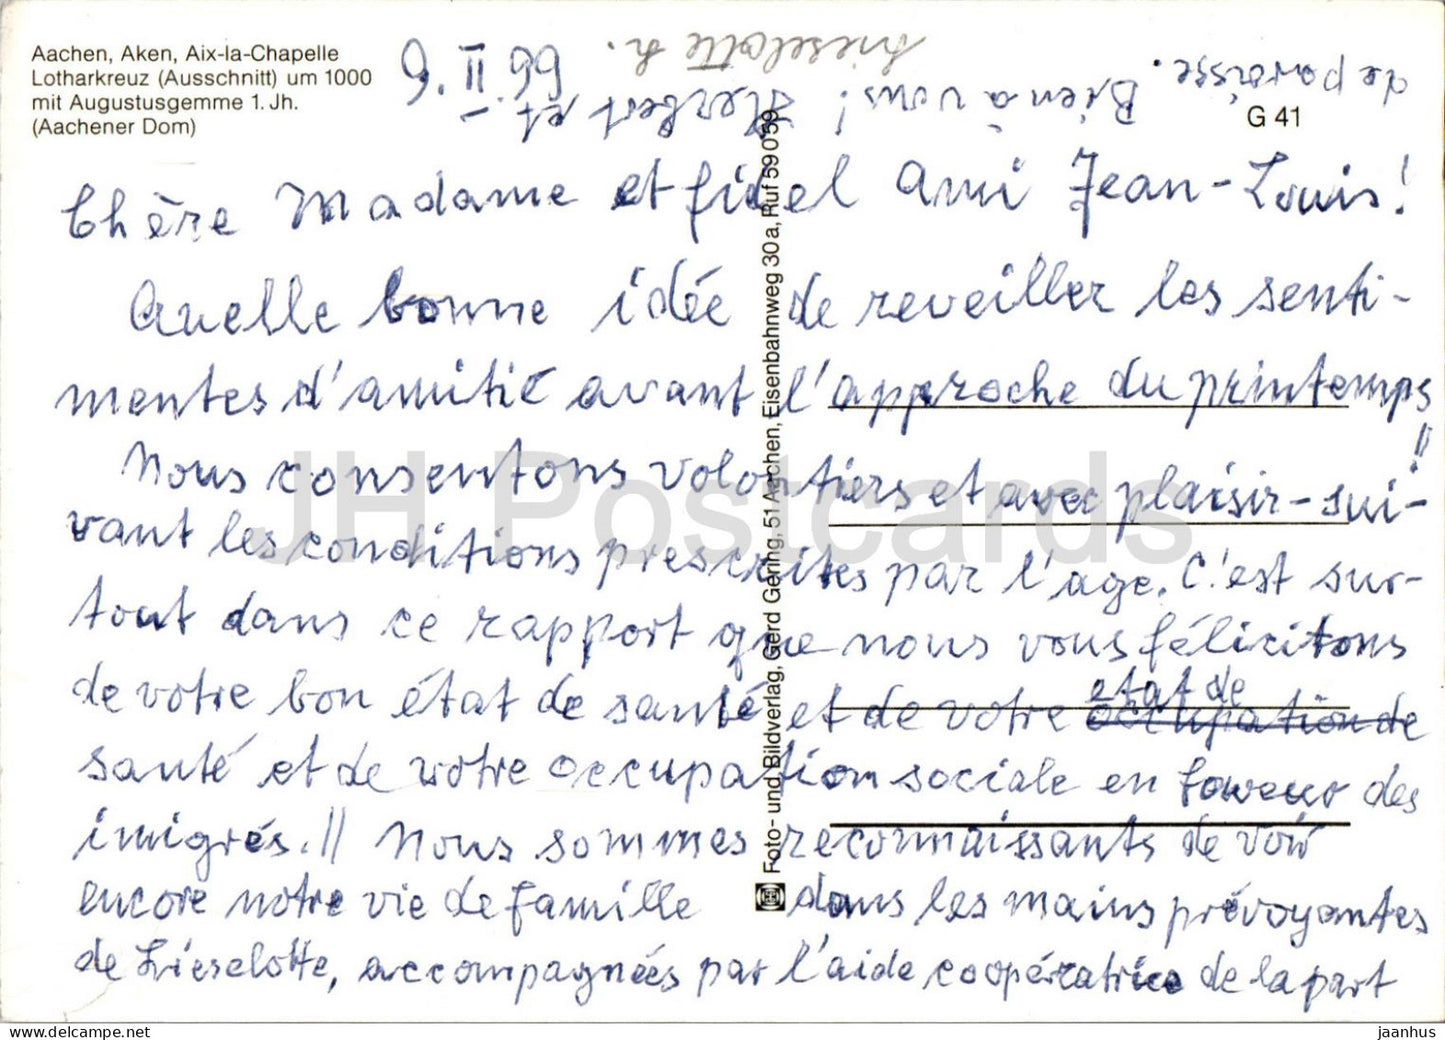 Aachen, Aken, Aix-la-Chapelle
Lotharkreuz (Ausschnitt) um 1000
mit Augustusgemme 1. Jh.
(Aachener Dom)
G 41
Chère Madame et fidel Ami Jean-Louis!
Quelle bonne idée de reveiller les senti-
mentes d'amitié avant l'approche du printemps
Nous consentons volontiers et avec plaisir - sui-
vant les conditions prescrites par l'age. C'est sur-
tout dans ce rapport que nous vous félicitons
de votre bon état de santé et de votre occupation de
etat de
santé et de votre occupation sociale en faveur des
imigrés. || Nous sommes reconnaissants de voir
encore notre vie de famille dans les mains prévoyantes
de Lieselotte, accompagnées par l'aide coopératrice de la part
de paroisse. Bien à vous! Herbert et
Lieselotte h.
Foto- und Bildverlag, Gerd Gering, 51 Aachen, Eisenbahnweg 30a, Ruf 59059
JH Postcards
jaanhus